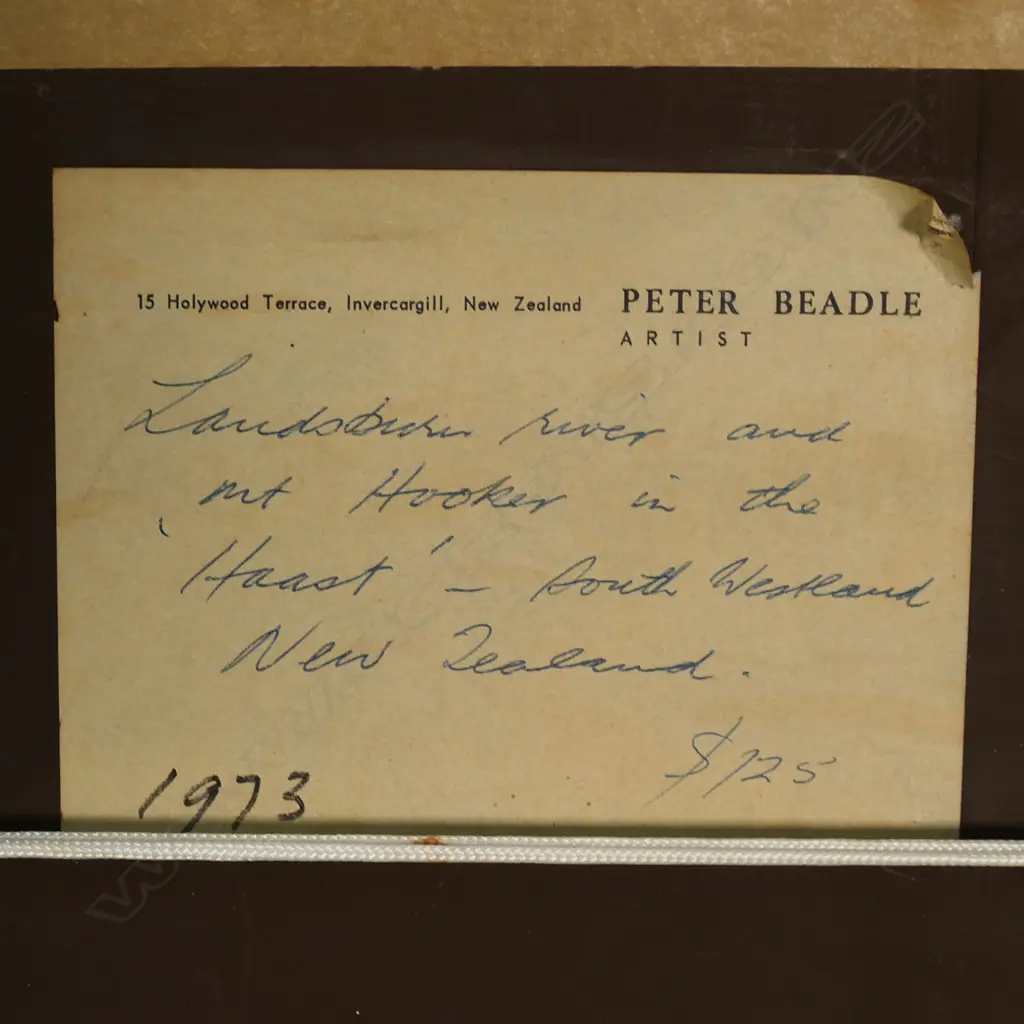 15 Holywood Terrace, Invercargill, New Zealand PETER BEADLE
ARTIST
Landsburn river and
mt Hooker in the
'Haast' — South Westland
New Zealand.
$125
1973